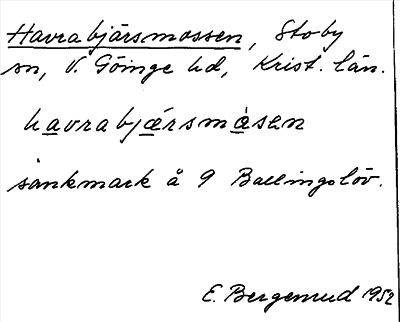 Havrabjärsmossen, Stoby
sn, V. Göinge hd, Krist. län.
havrabjársmàsen
sankmark å 9 Ballingslöv.
E. Bergemud 1952